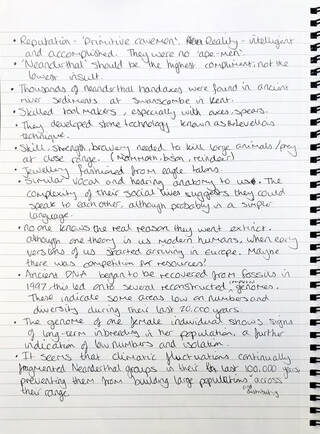 • Reputation - 'Primitive cavemen'. Reality - intelligent
and accomplished. They were no 'ape-men'.
• 'Neanderthal' should be the highest compliment, not the
lowest insult.
• Thousands of neanderthal handaxes were found in ancient
river sediments at Swanscombe in Kent.
• Skilled toolmakers, especially with axes, spears.
• They developed stone technology known as the levallois
technique.
• Skill, strength, bravery needed to kill large animals/prey
at close range. (Mammoth, bison, reindeer)
• Jewellery fashioned from eagle talons.
• Similar vocal and hearing anatomy to us. The
complexity of their social lives suggests they could
speak to each other, although probably in a simpler
language.
• no one knows the real reason they went extinct.
although one theory is us modern humans, when early
versions of us started arriving in Europe. Maybe
there was competition for resources?
• Ancient DNA began to be recovered from fossils in
1997, this led onto several reconstructed genomes.
These indicate some areas low on numbers and
diversity during their last 20,000 years.
• The genome of one female individual shows signs
of long-term inbreeding in her population, a further
indication of low numbers and isolation.
• It seems that climatic fluctuations continually
fragmented Neanderthal groups in their last 100,000 years
preventing them from building large populations across
their range.
and distributing